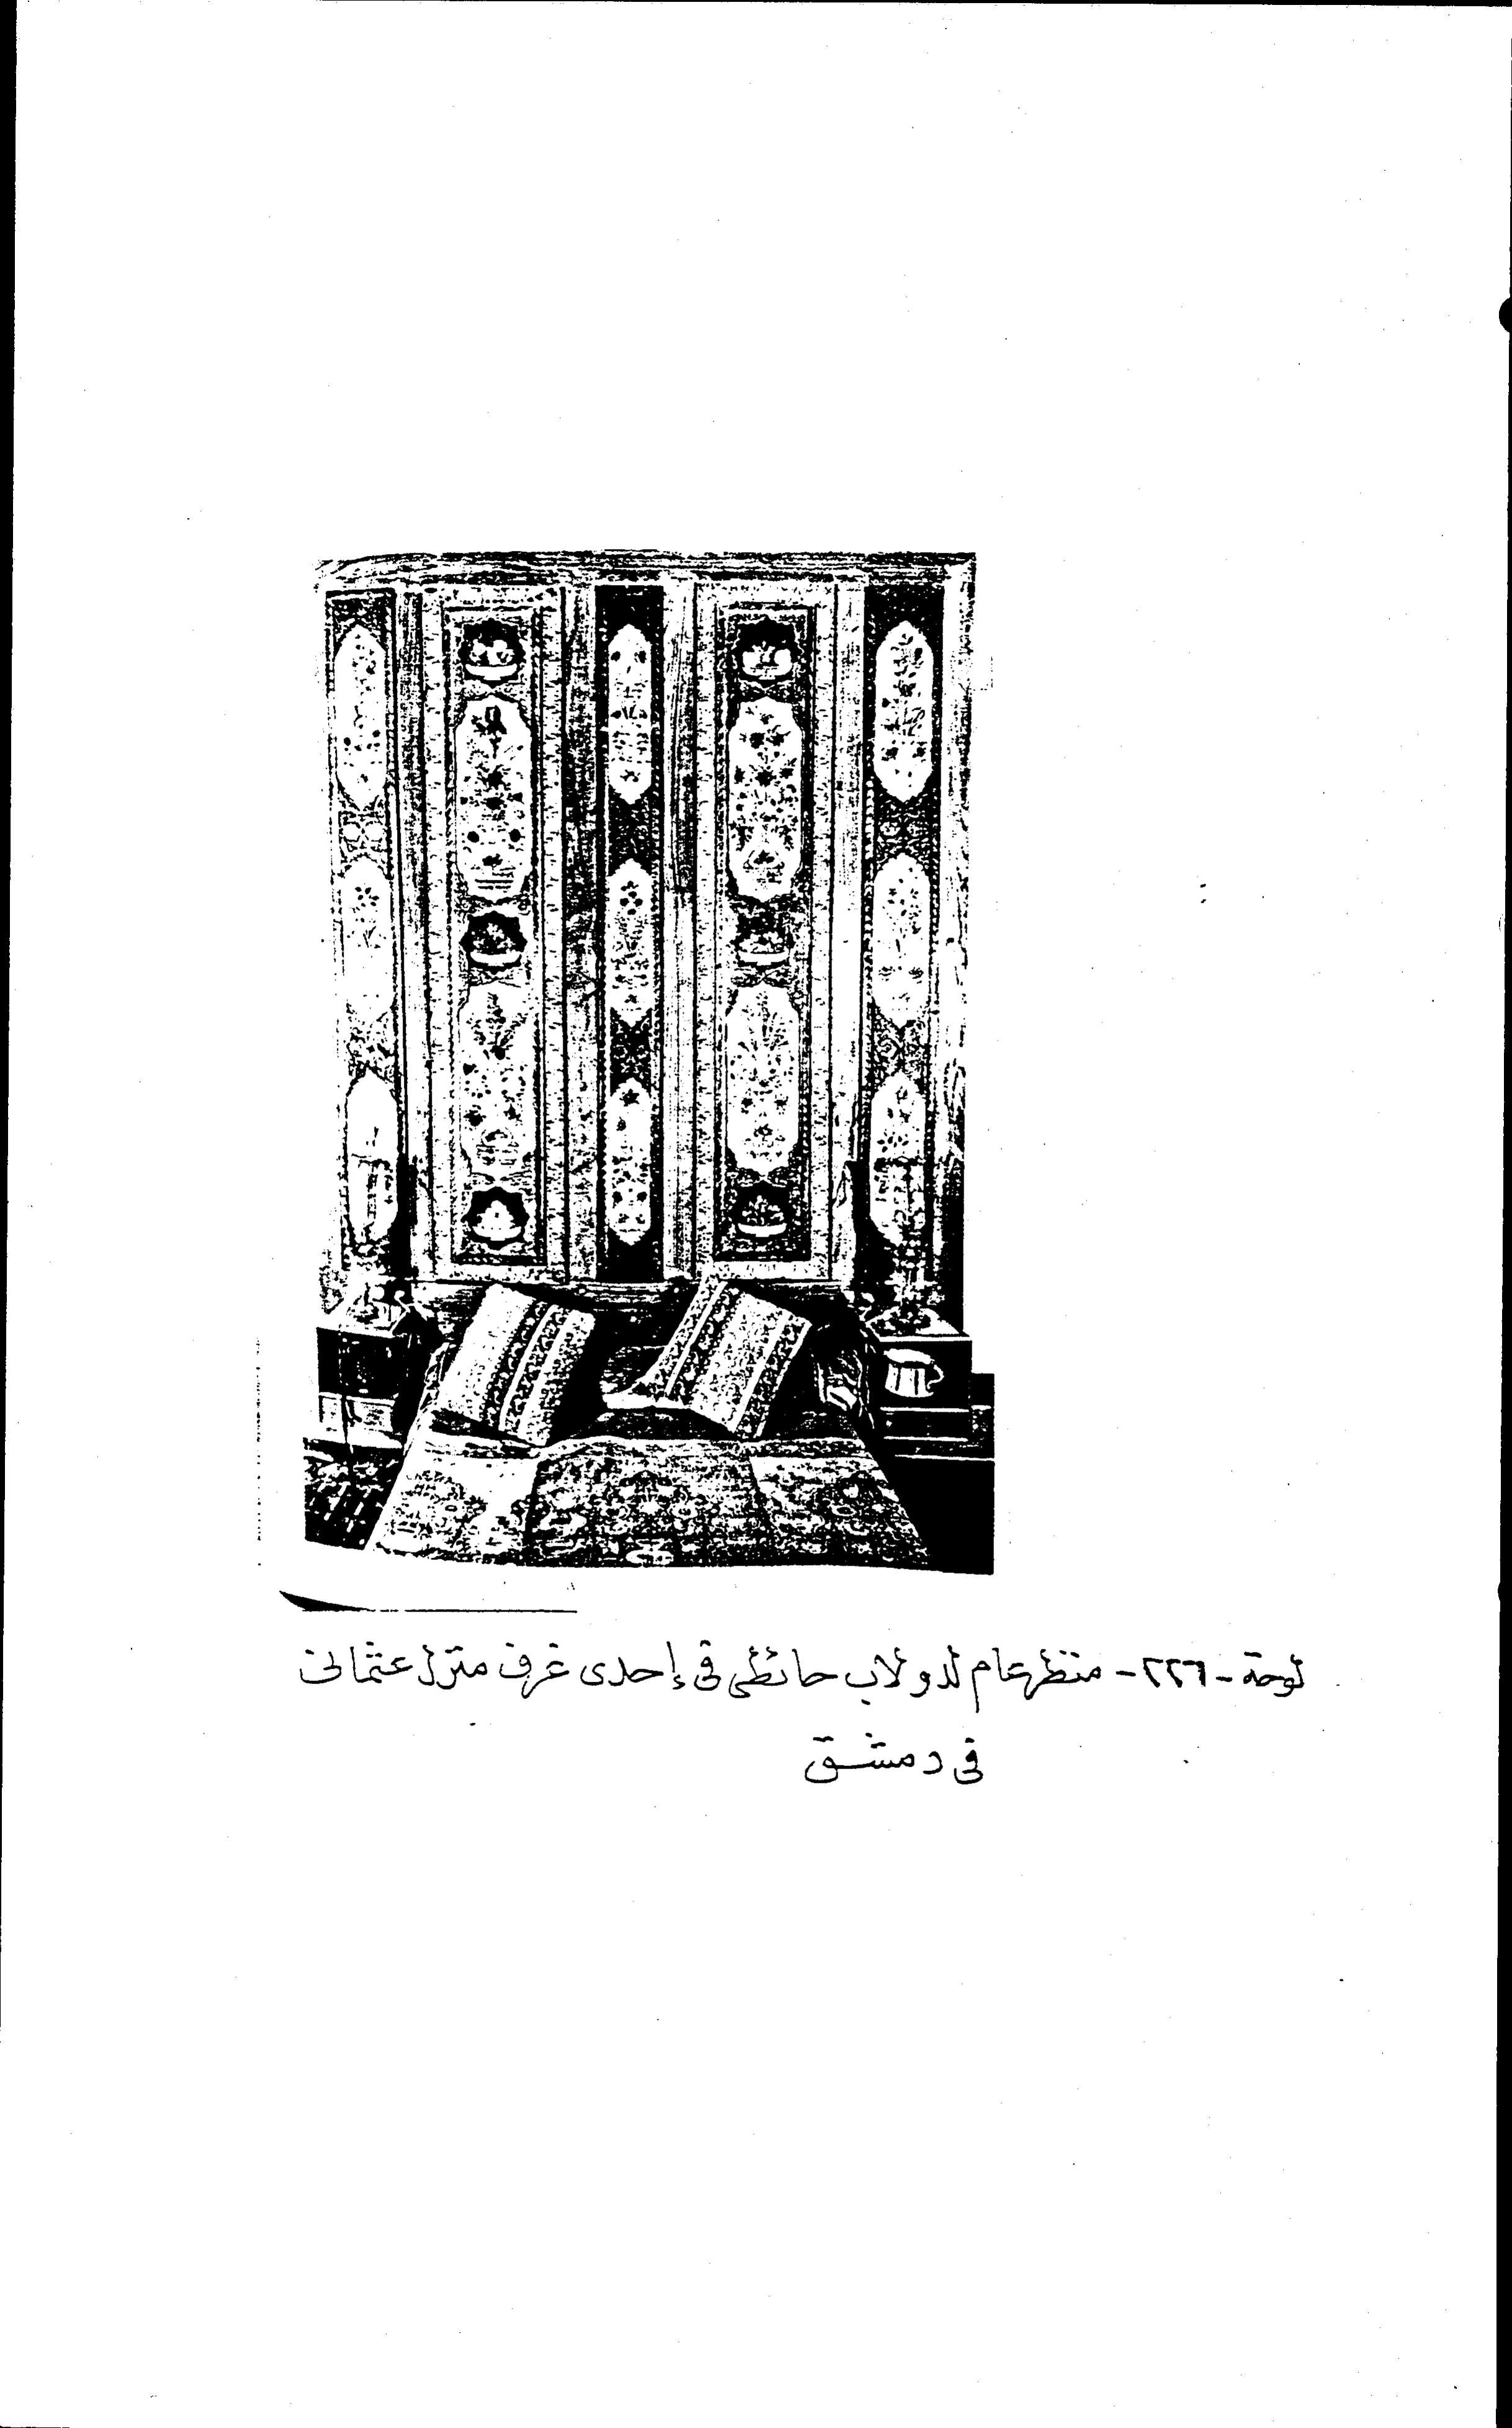 لوحة - ٢٢٦ - منظر عام لدولاب حائطى فى إحدى غرف منزل عثمانى
فى دمشق